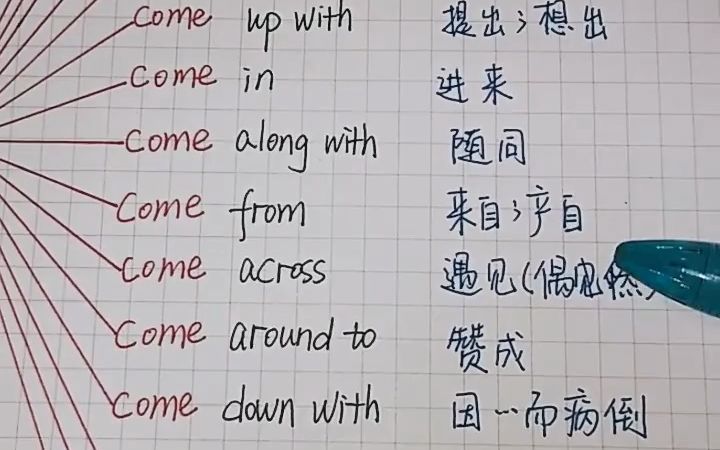 Come up with 提出；想出
Come in 进来
Come along with 随同
Come from 来自；产自
Come across 遇见(偶然)
Come around to 赞成
Come down with 因…而病倒